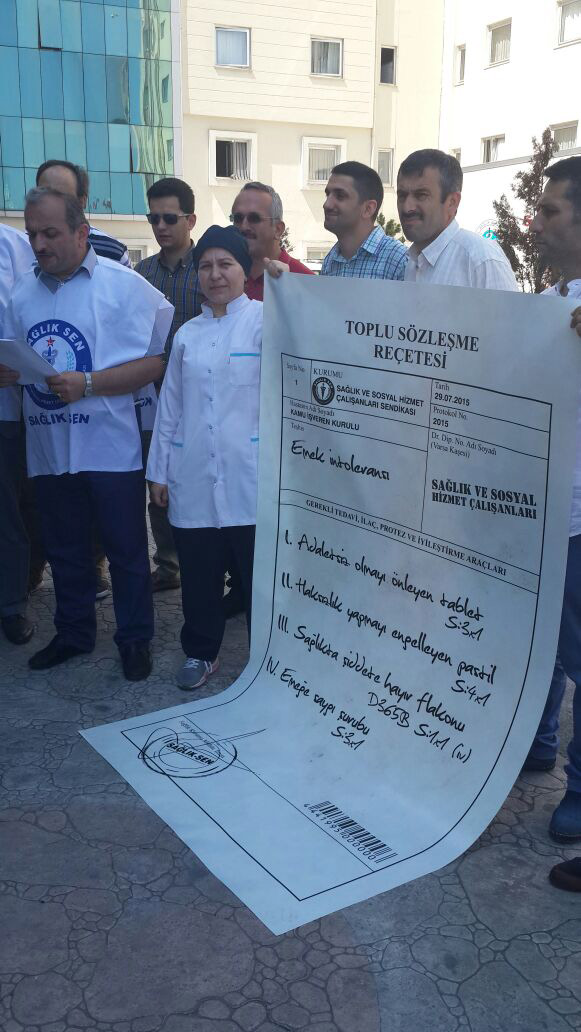 SAĞLIK SEN
SAĞLIK SEN
TOPLU SÖZLEŞME
REÇETESİ
Sayfa No
1
KURUMU
SAĞLIK VE SOSYAL HİZMET
ÇALIŞANLARI SENDİKASI
Tarih
29.07.2015
Hastanın Adı Soyadı
KAMU İŞVEREN KURULU
Protokol No.
2015
Teşhis
Emek intoleransı
Dr. Dip. No. Adı Soyadı
(Varsa Kaşesi)
SAĞLIK VE SOSYAL
HİZMET ÇALIŞANLARI
GEREKLİ TEDAVİ, İLAÇ, PROTEZ VE İYİLEŞTİRME ARAÇLARI
I. Adaletsiz olmayı önleyen tablet
S:3x1
II. Haksızlık yapmayı engelleyen pastil
S:4x1
III. Sağlıkta şiddete hayır flakonu
D365B S:1x1 (iv)
IV. Emeğe saygı şurubu
S:3x1
SAĞLIK-SEN